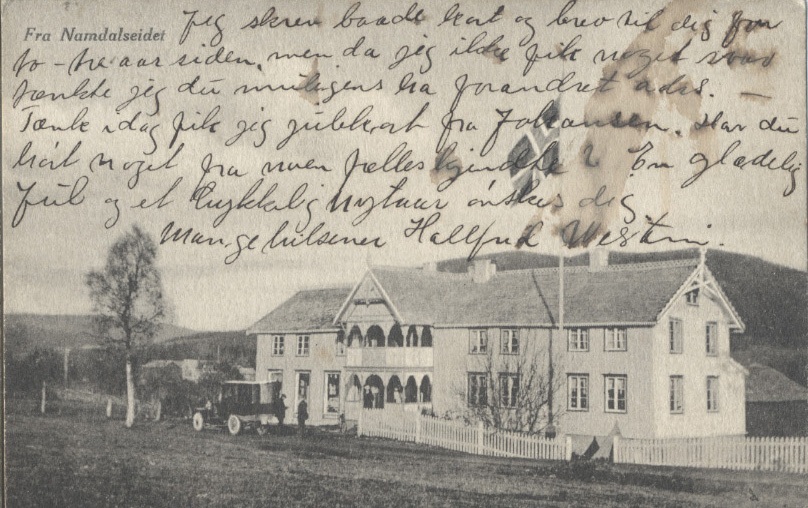 Fra Namdalseidet
Jeg skrev baade kort og brev til dig for
to-tre aar siden, men da jeg ikke fik noget svar
tænkte jeg du muligens ha forandret adrs. —
Tænk idag fik jeg julekort fra Johansen. Har du
hørt noget fra noen fælles kjendte? En glædelig
Jul og et lykkelig Nytaar ønskes dig
Mange hilsener Hallfrid